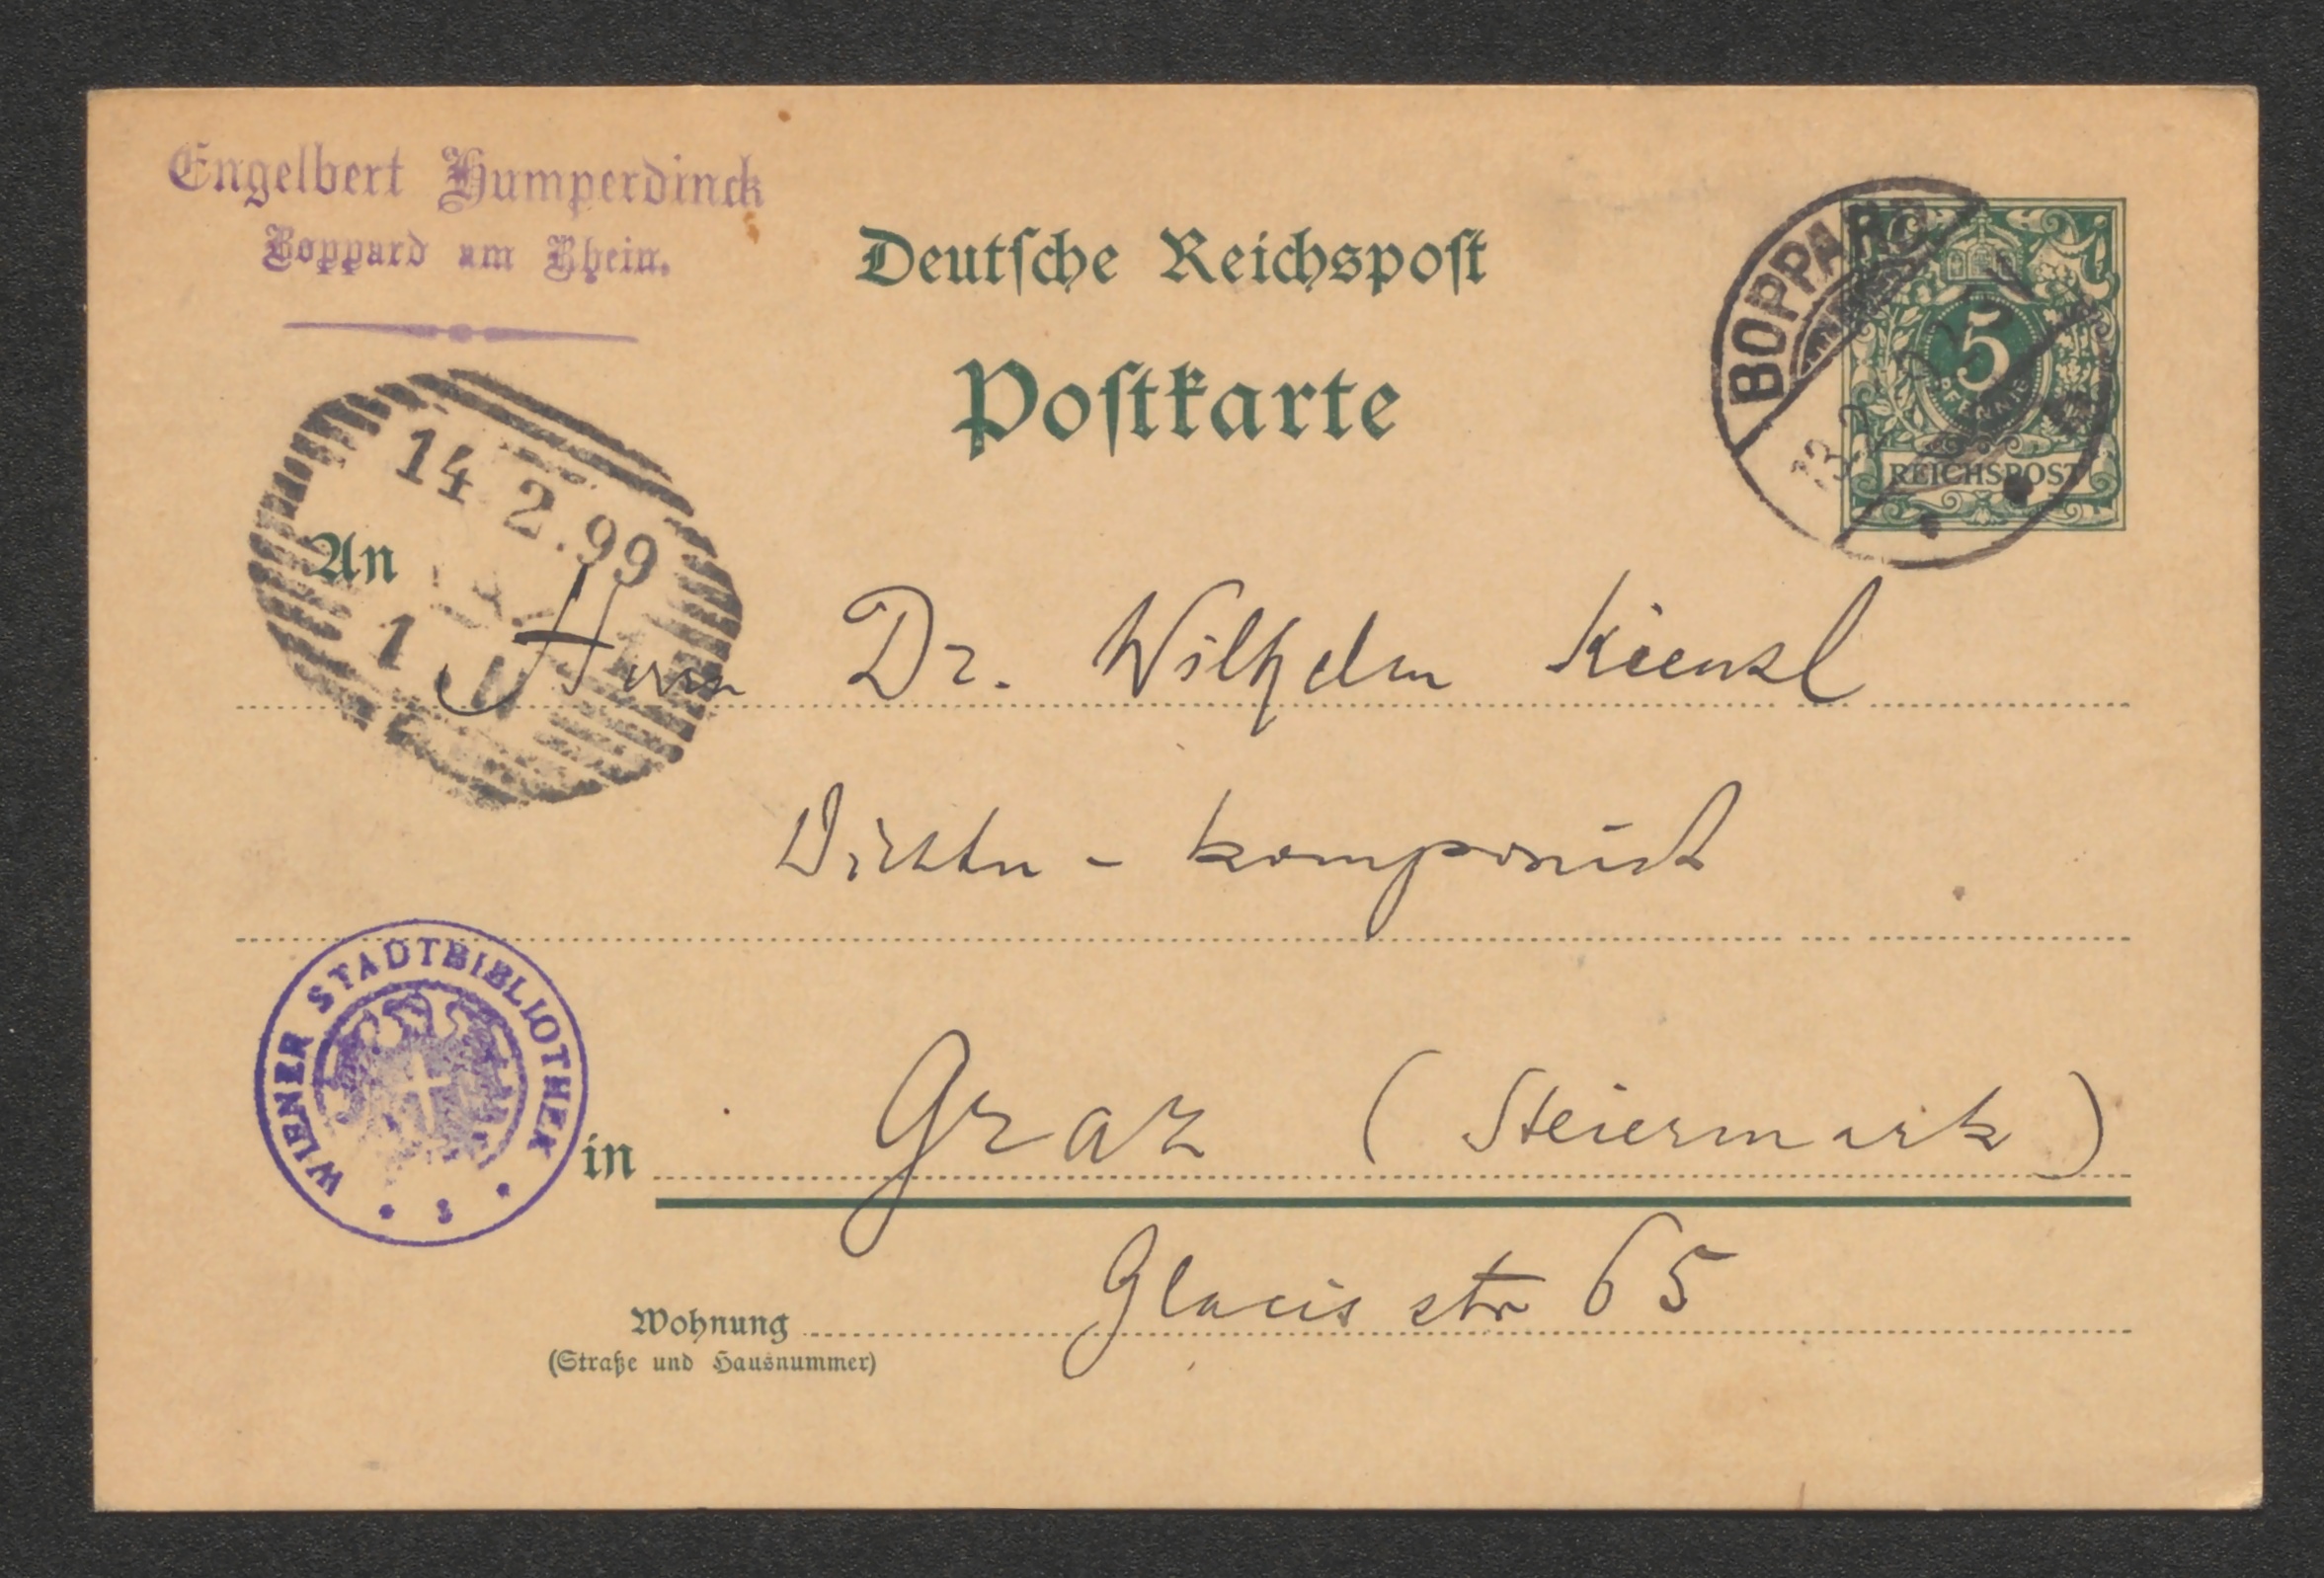 Engelbert Humperdinck
Boppard am Rhein.
Deutſche Reichspoſt
Poſtkarte
BOPPARD
13.2
5
PFENNIG
REICHSPOST
14 2.99
An
1
Herrn Dr. Wilhelm Kienzl
Dichter - komponist
WIENER STADTBIBLIOTHEK
in Graz (Steiermark)
Wohnung Glacis str 65
(Straße und Hausnummer)